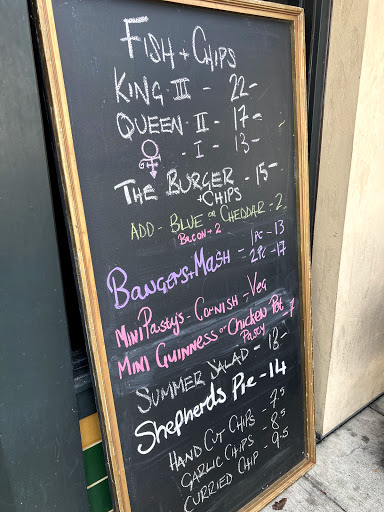 FISH + CHIPS
KING III - 22-
QUEEN II - 17-
- I - 13-
THE BURGER - 15-
+ CHIPS
ADD - BLUE or CHEDDAR - 2
BACON + 2
BANGERS + MASH - 1PC - 13
2PC - 17
MINI PASTYS - CORNISH - VEG
MINI GUINNESS or CHICKEN POT - 7
PASTY
SUMMER SALAD - 18-
Shepherds Pie - 14
HAND CUT CHIPS - 7.5
GARLIC CHIPS - 8.5
CURRIED CHIP - 9.5